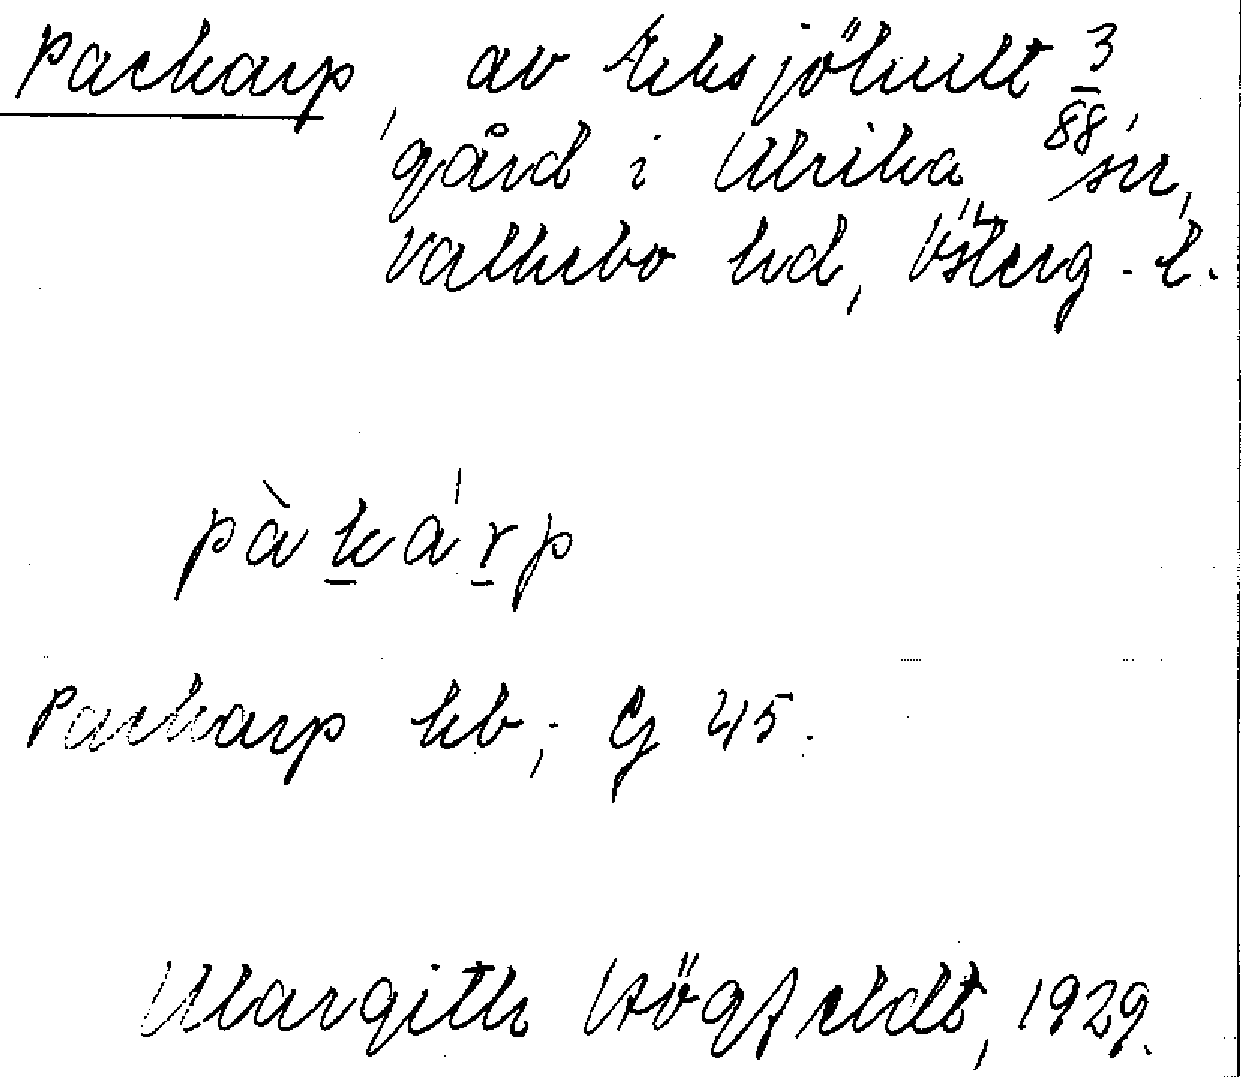 Packarp, av Eksjöhult 3/88,
gård i Ulrika sn,
Valkebo hd, Österg. l.
pàkárp
Packarp kb; G 45.
Margith Högfeldt, 1929.